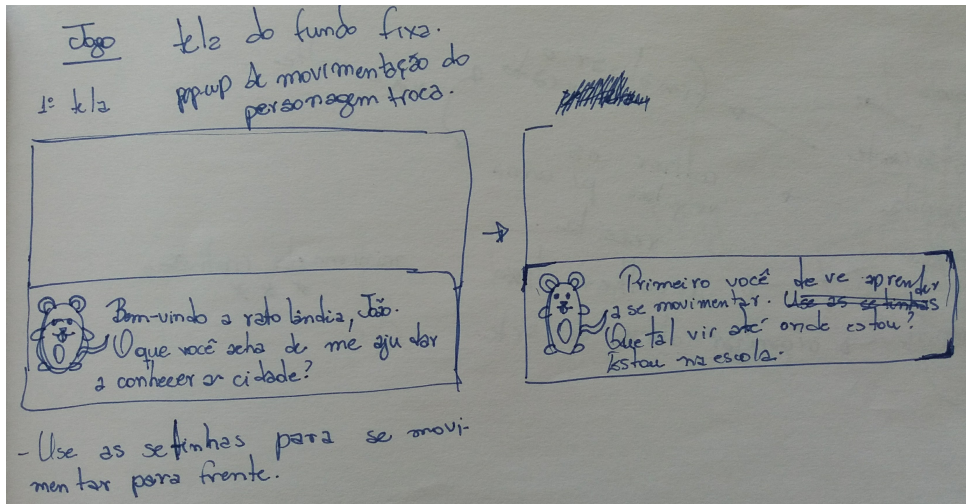 Jogo tela do fundo fixa.
1ª tela pop-up de movimentação do
personagem troca.
Bem-vindo a ratolândia, João.
O que você acha de me ajudar
a conhecer a cidade?
Primeiro você deve aprender
a se movimentar. Use as setinhas
Que tal vir até onde estou?
Estou na escola.
- Use as setinhas para se movi-
mentar para frente.